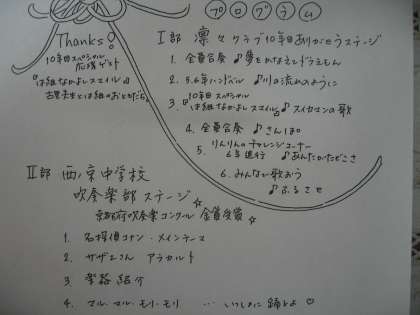 プログラム
Thanks!
10年目スペシャル
応援ゲスト
『は組なかよしスマイル』
古里先生とは組のおともだち
Ⅰ部 凛々クラブ10年目ありがとうステージ
1. 全員合奏 ♪夢をかなえてドラえもん
2. 5.6年ハンドベル ♪川の流れのように
3. 『10年目スペシャル
は組なかよしスマイル』 ♪スイカマンの歌
4. 全員合奏 ♪さんぽ
5. りんりんのチャレンジコーナー
6年進行 ♪あんたがたどこさ
6. みんなで歌おう
♪ふるさと
Ⅱ部 西ノ京中学校
吹奏楽部ステージ
京都府吹奏楽コンクール 金賞受賞☆
1. 名探偵コナン・メインテーマ
2. サザエさん アラカルト
3. 楽器紹介
4. マル・マル・モリ・モリ … いっしょに踊るよ♡